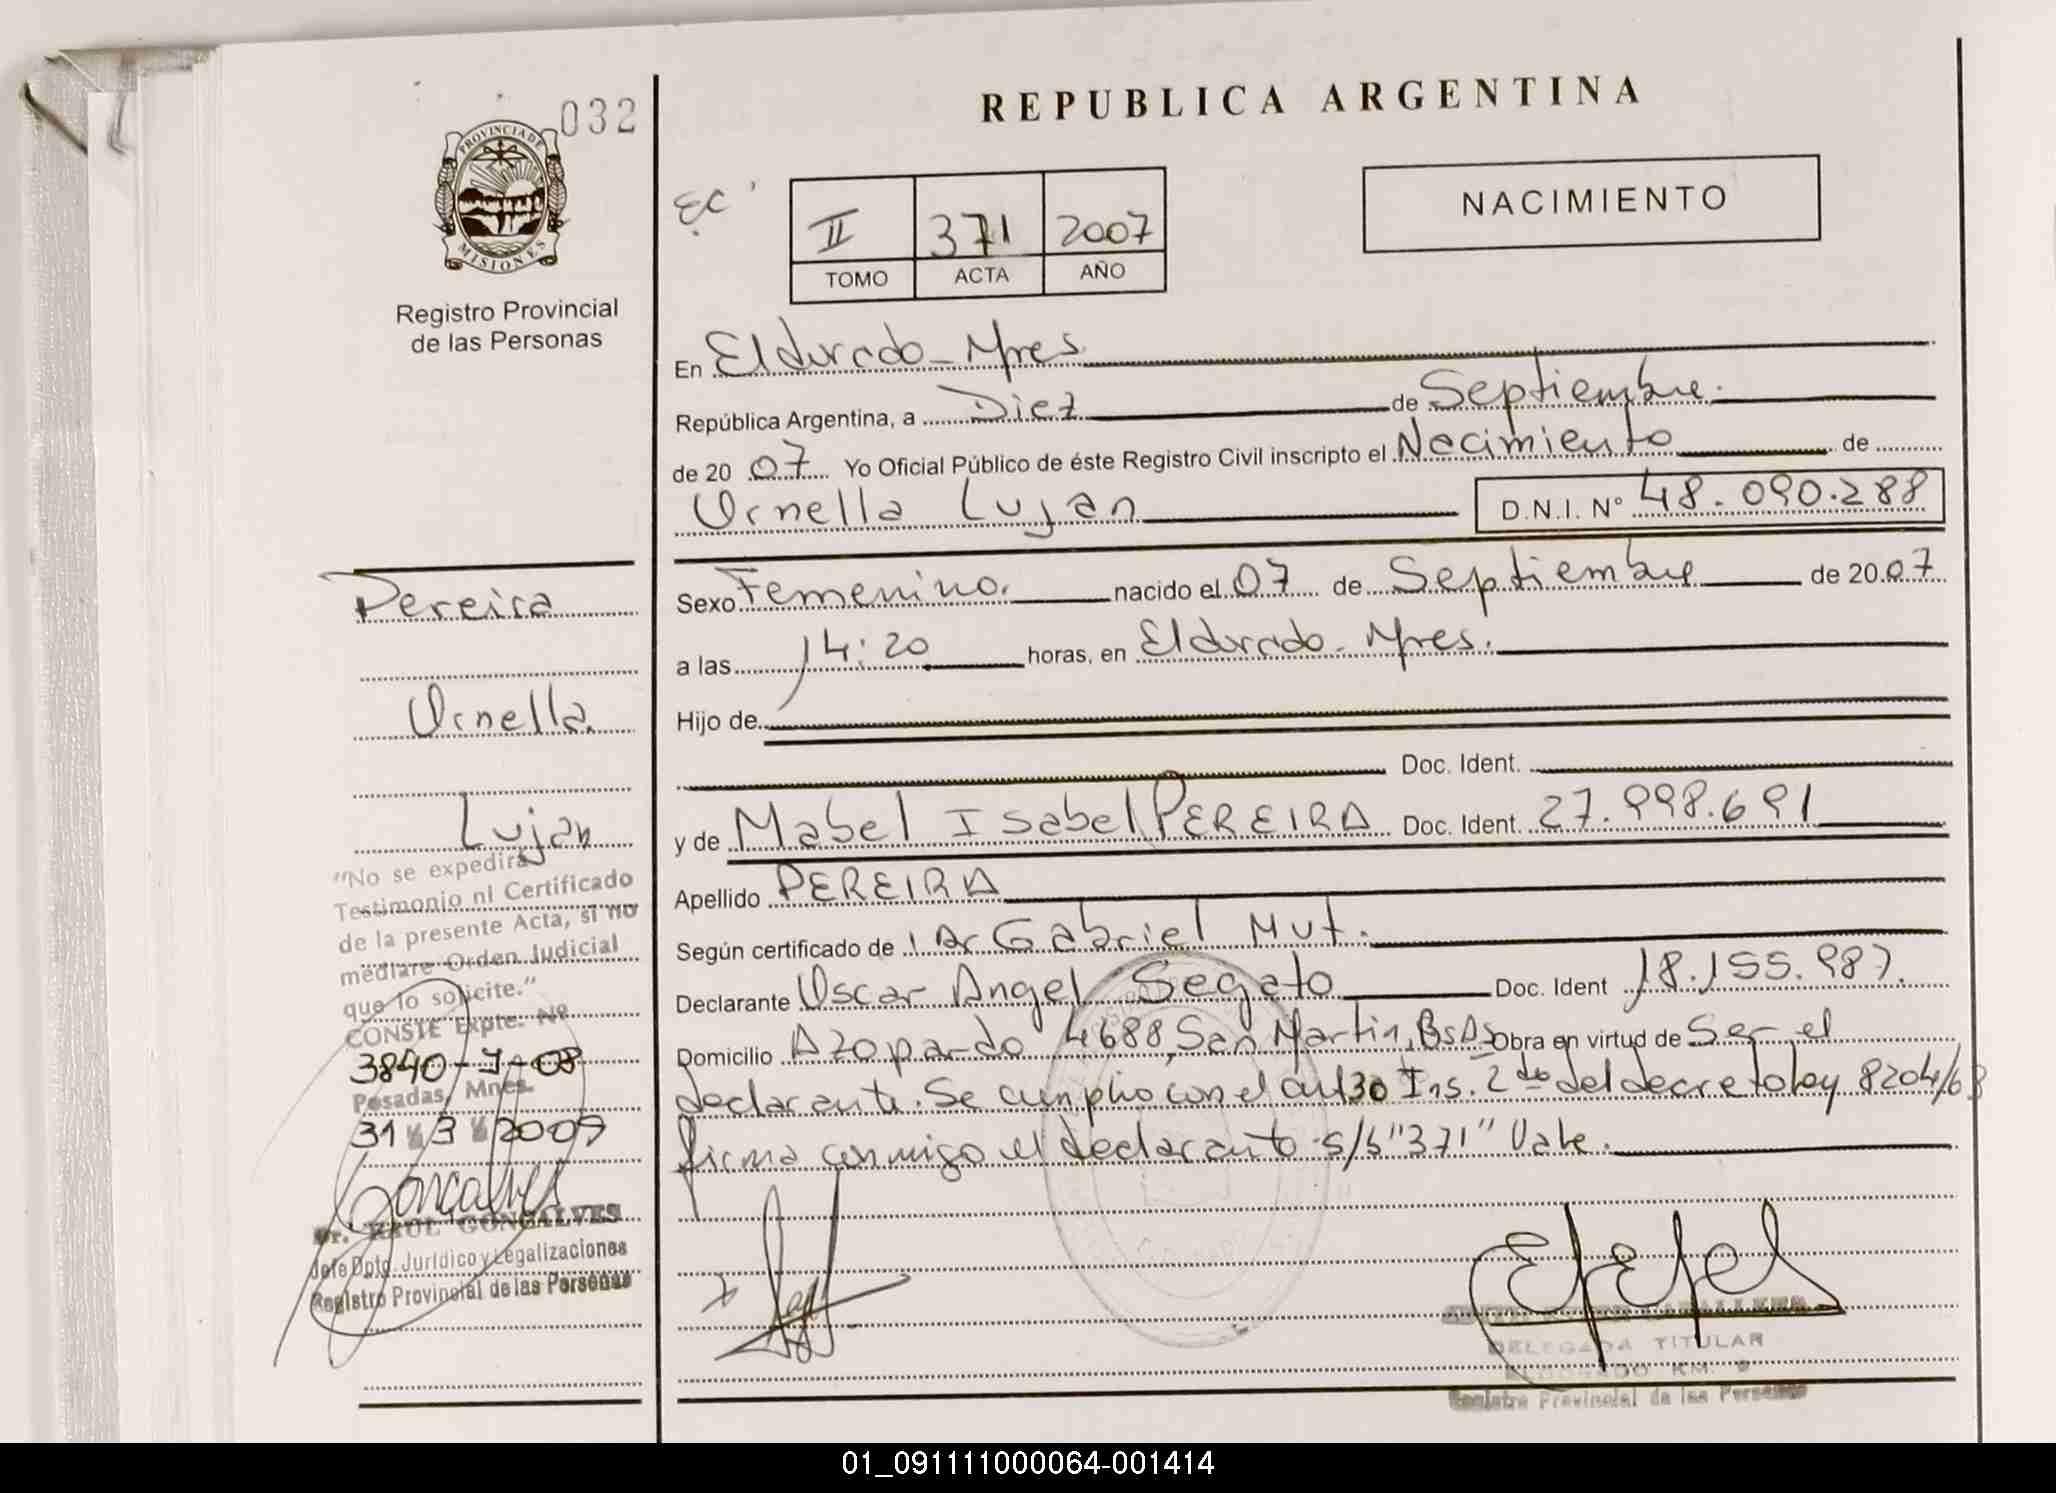 032
PROVINCIA DE
MISIONES
Registro Provincial
de las Personas
REPUBLICA ARGENTINA
NACIMIENTO
EC
II 371 2007
TOMO ACTA AÑO
En Eldorado - Mnes.
República Argentina, a Diez de Septiembre.
de 20 07 Yo Oficial Público de éste Registro Civil inscripto el Nacimiento de
Ornella Lujan D.N.I. Nº 48.090.288
Sexo Femenino. nacido el 07 de Septiembre de 20 07
a las 14:20 horas, en Eldorado - Mnes.
Hijo de
Doc. Ident.
y de Mabel Isabel PEREIRA Doc. Ident. 27.998.691
Apellido PEREIRA
Según certificado de Dr Gabriel Mut.
Declarante Oscar Angel Segato Doc. Ident 18.155.987.
Domicilio Azopardo 4688, San Martin, BsAs Obra en virtud de Ser el
declarante. Se cumplio con el art 30 Ins. 2do del decreto ley 8204/63
firma conmigo el declarante s/b "371" Vale.
Pereira
Ornella
Lujan
"No se expedirá
Testimonio ni Certificado
de la presente Acta, si no
mediare Orden Judicial
que lo solicite."
CONSTE Expte. Nº
3840-J-08
Posadas, Mnes.
31 3 2009
Dr. RAUL GONCALVES
Jefe Dpto. Jurídico y Legalizaciones
Registro Provincial de las Personas
DELEGADA TITULAR
ELDORADO KM. 9
Registro Provincial de las Personas
01_091111000064-001414